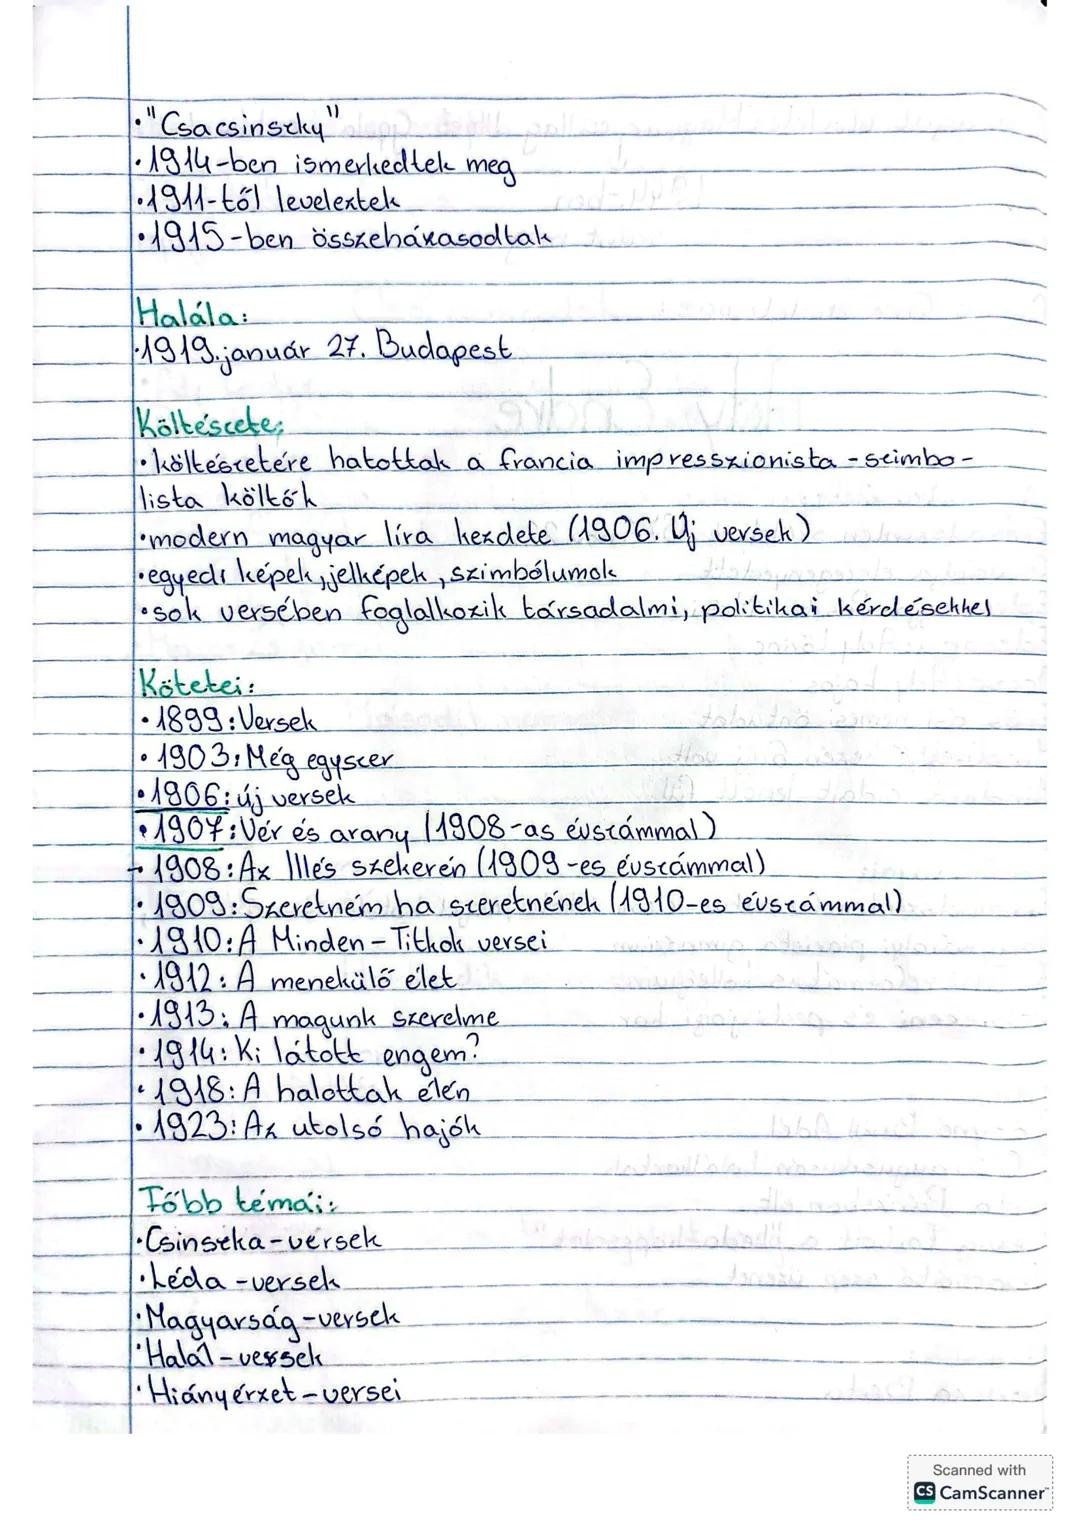 •"Csacsinszky"
•1914-ben ismerkedtek meg
•1911-től leveleztek
•1915-ben összeházasodtak
Halála:
•1919. január 27. Budapest
Költészete:
•költészetére hatottak a francia impresszionista-szimbo-
lista költők
•modern magyar líra kezdete (1906. Új versek)
•egyedi képek, jelképek, szimbólumok
•sok versében foglalkozik társadalmi, politikai kérdésekkel
Kötetei:
•1899: Versek
•1903: Még egyszer
•1906: új versek
•1907: Vér és arany (1908-as évszámmal)
•1908: Az Illés szekerén (1909-es évszámmal)
•1909: Szeretném ha szeretnének (1910-es évszámmal)
•1910: A Minden-Titkok versei
•1912: A menekülő élet
•1913: A magunk szerelme
•1914: Ki látott engem?
•1918: A halottak élén
•1923: Az utolsó hajók
Főbb témái:
•Csinszka-versek
•Léda-versek
•Magyarság-versek
•Halál-versek
•Hiányérzet-versei
Scanned with
CS CamScanner